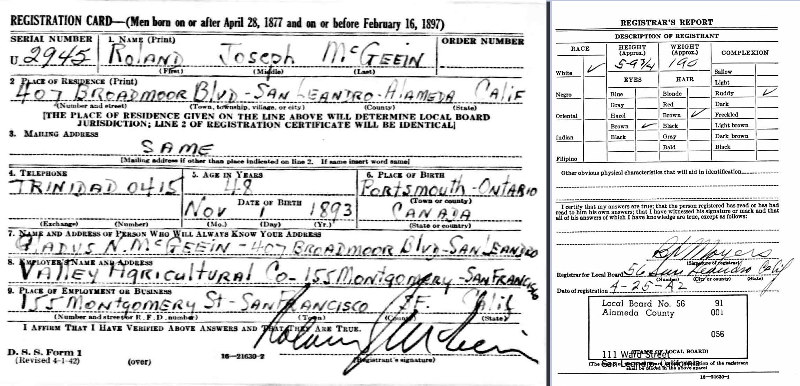 REGISTRATION CARD—(Men born on or after April 28, 1877 and on or before February 16, 1897)
SERIAL NUMBER
1. NAME (Print)
ORDER NUMBER
U 2945
ROLAND JOSEPH McGEEIN
(First) (Middle) (Last)
2. PLACE OF RESIDENCE (Print)
407 BROADMOOR BLVD - SAN LEANDRO - ALAMEDA CALIF
(Number and street) (Town, township, village, or city) (County) (State)
[THE PLACE OF RESIDENCE GIVEN ON THE LINE ABOVE WILL DETERMINE LOCAL BOARD
JURISDICTION; LINE 2 OF REGISTRATION CERTIFICATE WILL BE IDENTICAL]
3. MAILING ADDRESS
SAME
[Mailing address if other than place indicated on line 2. If same insert word same]
4. TELEPHONE
5. AGE IN YEARS
6. PLACE OF BIRTH
TRINIDAD 0415
48
PORTSMOUTH - ONTARIO
DATE OF BIRTH
(Town or county)
NOV 1 1893
CANADA
(Exchange) (Number) (Mo.) (Day) (Yr.) (State or country)
7. NAME AND ADDRESS OF PERSON WHO WILL ALWAYS KNOW YOUR ADDRESS
GLADYS N. McGEEIN - 407 BROADMOOR BLVD - SAN LEANDRO
8. EMPLOYER'S NAME AND ADDRESS
VALLEY AGRICULTURAL CO - 155 MONTGOMERY - SAN FRANCISCO
9. PLACE OF EMPLOYMENT OR BUSINESS
155 MONTGOMERY ST - SAN FRANCISCO S.F. CALIF
(Number and street or R. F. D. number) (Town) (County) (State)
I AFFIRM THAT I HAVE VERIFIED ABOVE ANSWERS AND THAT THEY ARE TRUE.
D. S. S. Form 1
(Revised 4-1-42) (over) 16—21630-2 (Registrant's signature)
REGISTRAR'S REPORT
DESCRIPTION OF REGISTRANT
RACE
HEIGHT (Approx.)
WEIGHT (Approx.)
COMPLEXION
White ✓
5-9 3/4
190
Sallow
EYES
HAIR
Light
Negro
Blue
Blonde
Ruddy ✓
Gray
Red
Dark
Oriental
Hazel
Brown ✓
Freckled
Brown ✓
Black
Light brown
Indian
Black
Gray
Dark brown
Bald
Black
Filipino
Other obvious physical characteristics that will aid in identification
I certify that my answers are true; that the person registered has read or has had
read to him his own answers; that I have witnessed his signature or mark and that
all of his answers of which I have knowledge are true, except as follows:
(Signature of registrar)
Registrar for Local Board 56 San Leandro Calif
(Number) (City or county) (State)
Date of registration 4-25-42
Local Board No. 56 91
Alameda County 001
056
111 Ward Street
San Leandro, California
(STAMP OF LOCAL BOARD)
16—21630-1